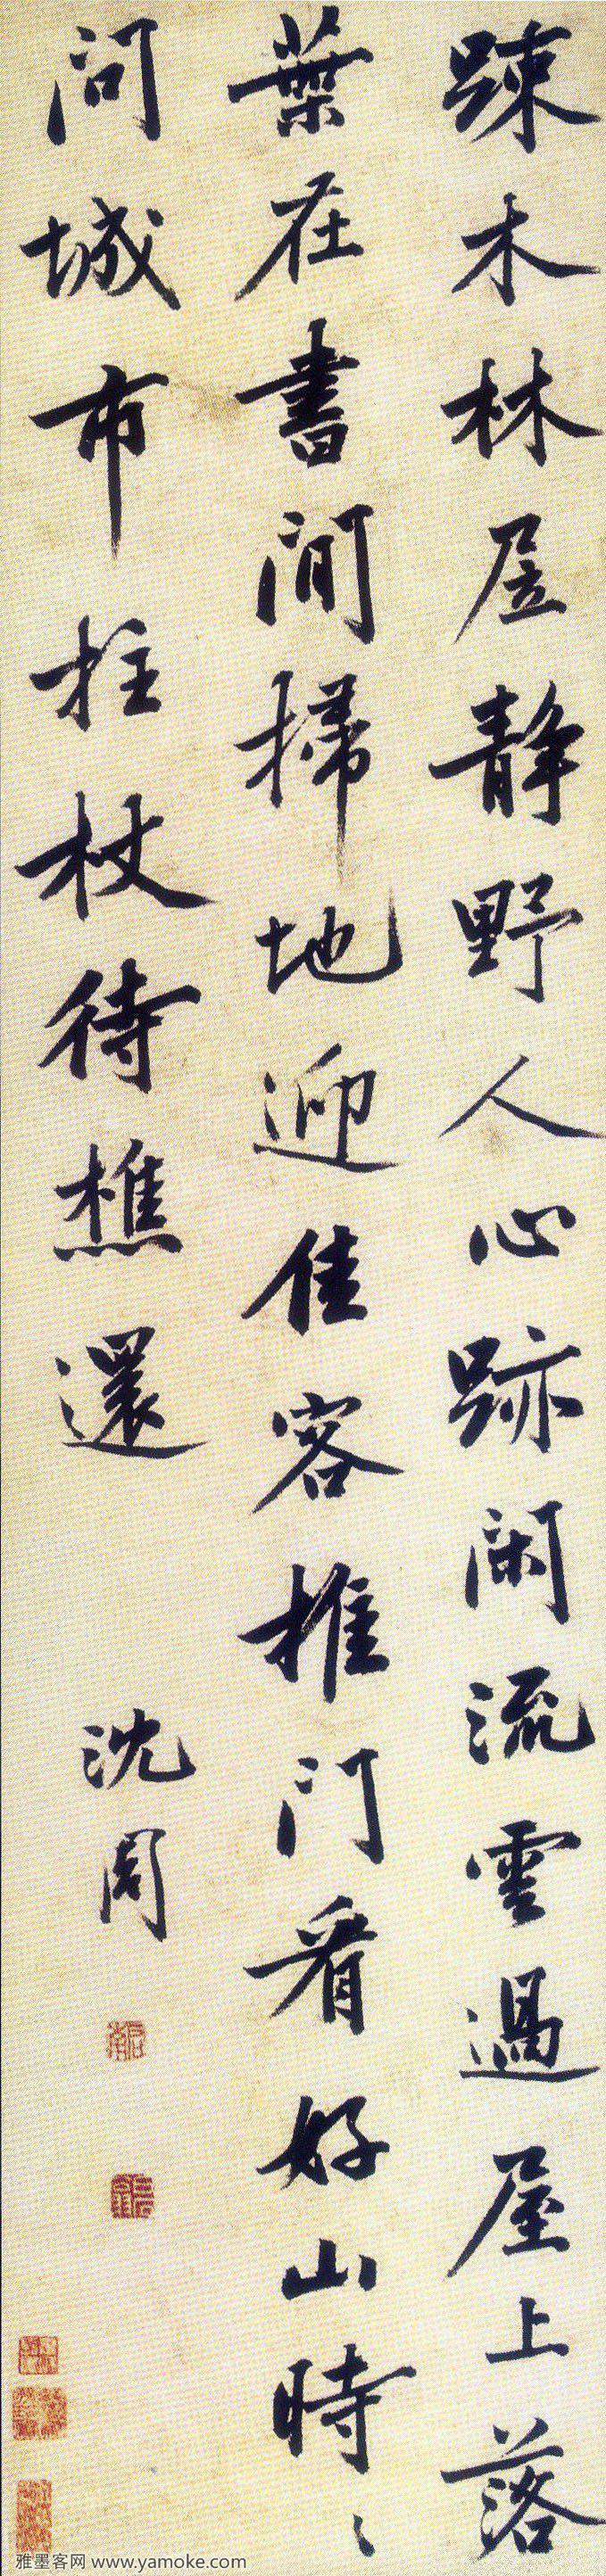 踈木林居静野人心跡閑流雲過屋上落
葉在書間掃地迎佳客推門看好山時〻
问城市拄杖待樵還
沈周
雅墨客网 www.yamoke.com